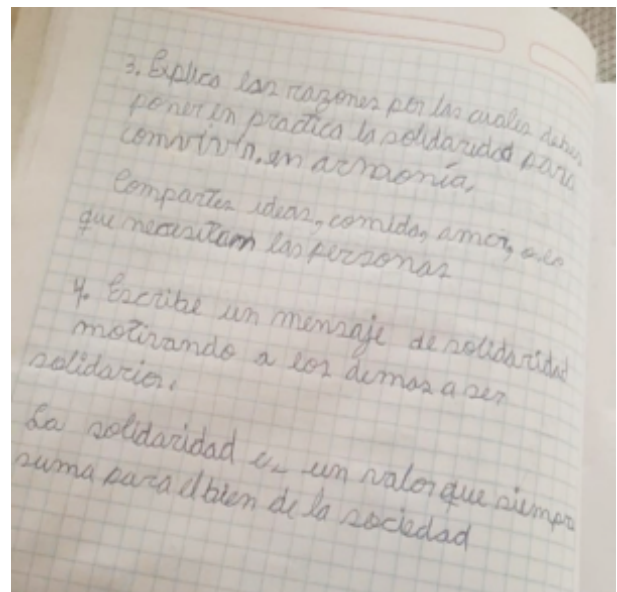 3. Explica las razones por las cuales debes
poner en practica la solidaridad para
convivir, en armonía.
Compartir ideas, comida, amor, a
que necesitam las personas
4. Escribe un mensaje de solidaridad
motivando a los demas a ser
solidarios.
La solidaridad es un valor que siempre
suma para el bien de la sociedad